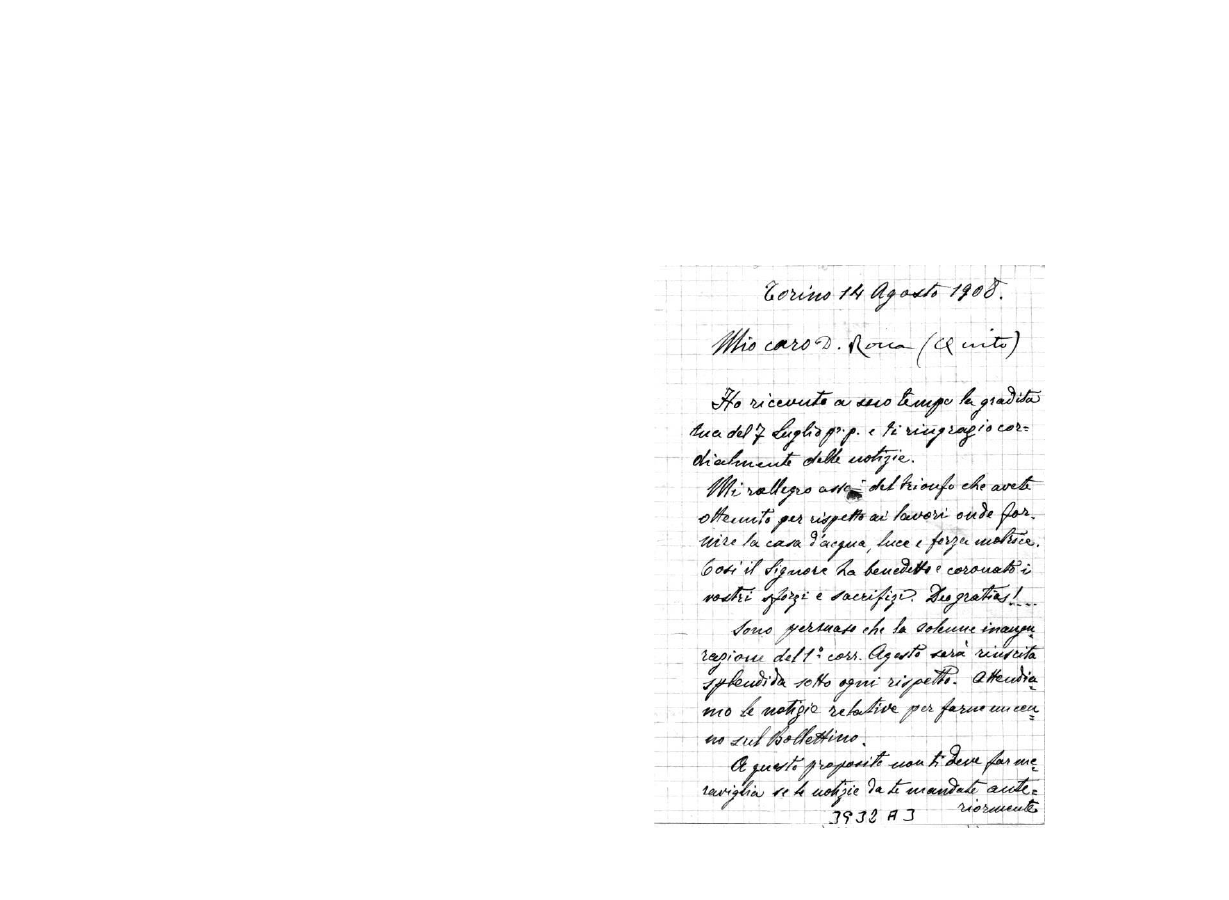 Torino 14 Agosto 1908.
Mio caro D. Rocca (Quito)
Ho ricevuto a suo tempo la gradita
tua del 7 Luglio p. p. e ti ringrazio cor=
dialmente delle notizie.
Mi rallegro assai del trionfo che avete
ottenuto per rispetto ai lavori onde for-
nire la casa d'acqua, luce e forza motrice.
Così il Signore ha benedetto e coronato i
vostri sforzi e sacrifizi. Deo gratias!...
Sono persuaso che la solenne inaugu=
razione del 1° corr. Agosto sarà riuscita
splendida sotto ogni rispetto. Attendia=
mo le notizie relative per farne un cen=
no sul Bollettino.
A questo proposito non ti deve far me=
raviglia se le notizie da te mandate ante=
riormente
3932 A 3